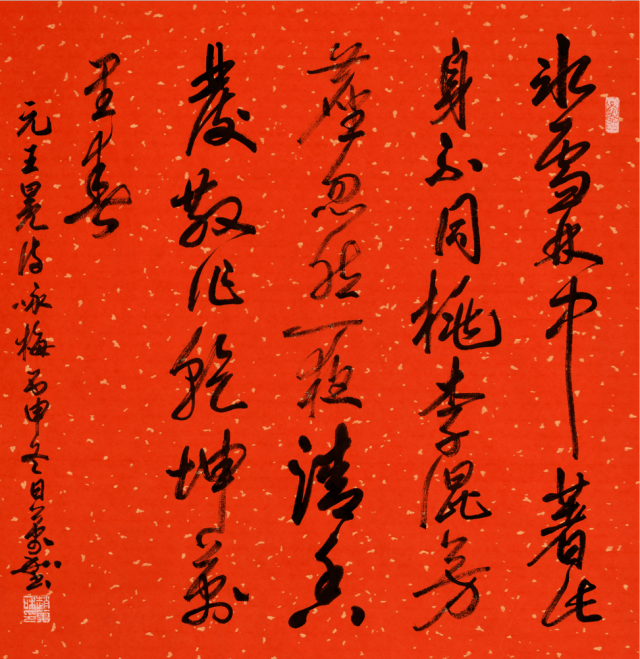 冰雪林中著此
身不同桃李混芳
塵忽然一夜清香
發散作乾坤萬
里春
元王冕詩咏梅丙申冬日